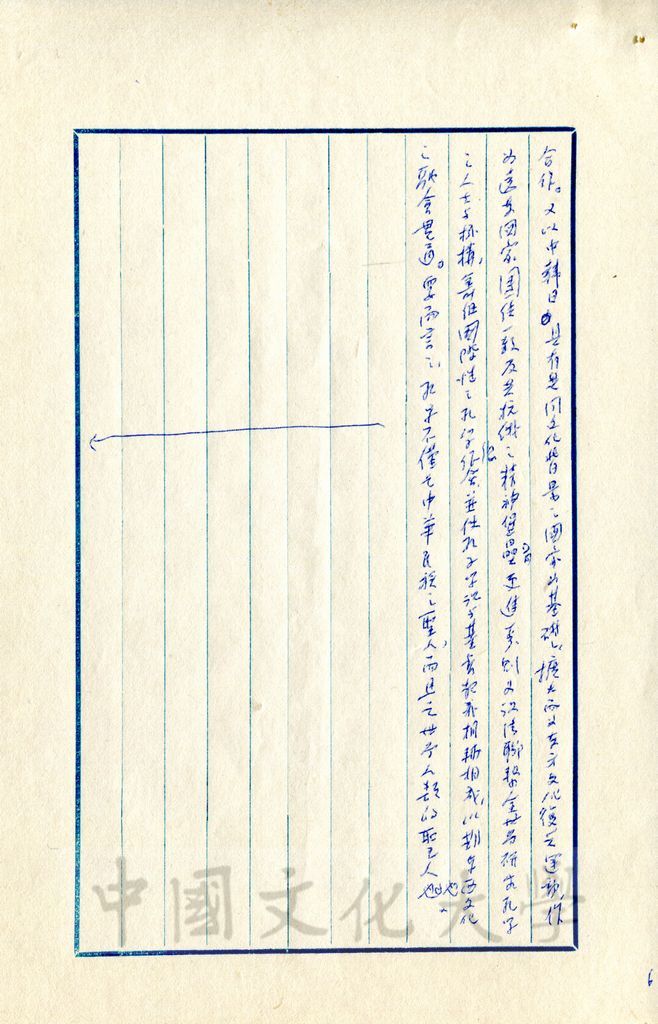 合作。又以中韓日具有是同文化背景之國家為基礎，擴大而及東方文化復興運動，作
為遠東國家團結一致反共抗俄之精神堡壘。更進焉，則又設法聯繫全世界研究孔子
之人士與機構，籌組國際性之孔學會，並使孔子學說與基督教義相輔相成，以期東西文化
之融會貫通。要而言之，孔子不僅是中華民族之聖人，而且是世界人類的聖人也。
中國文化大學
6